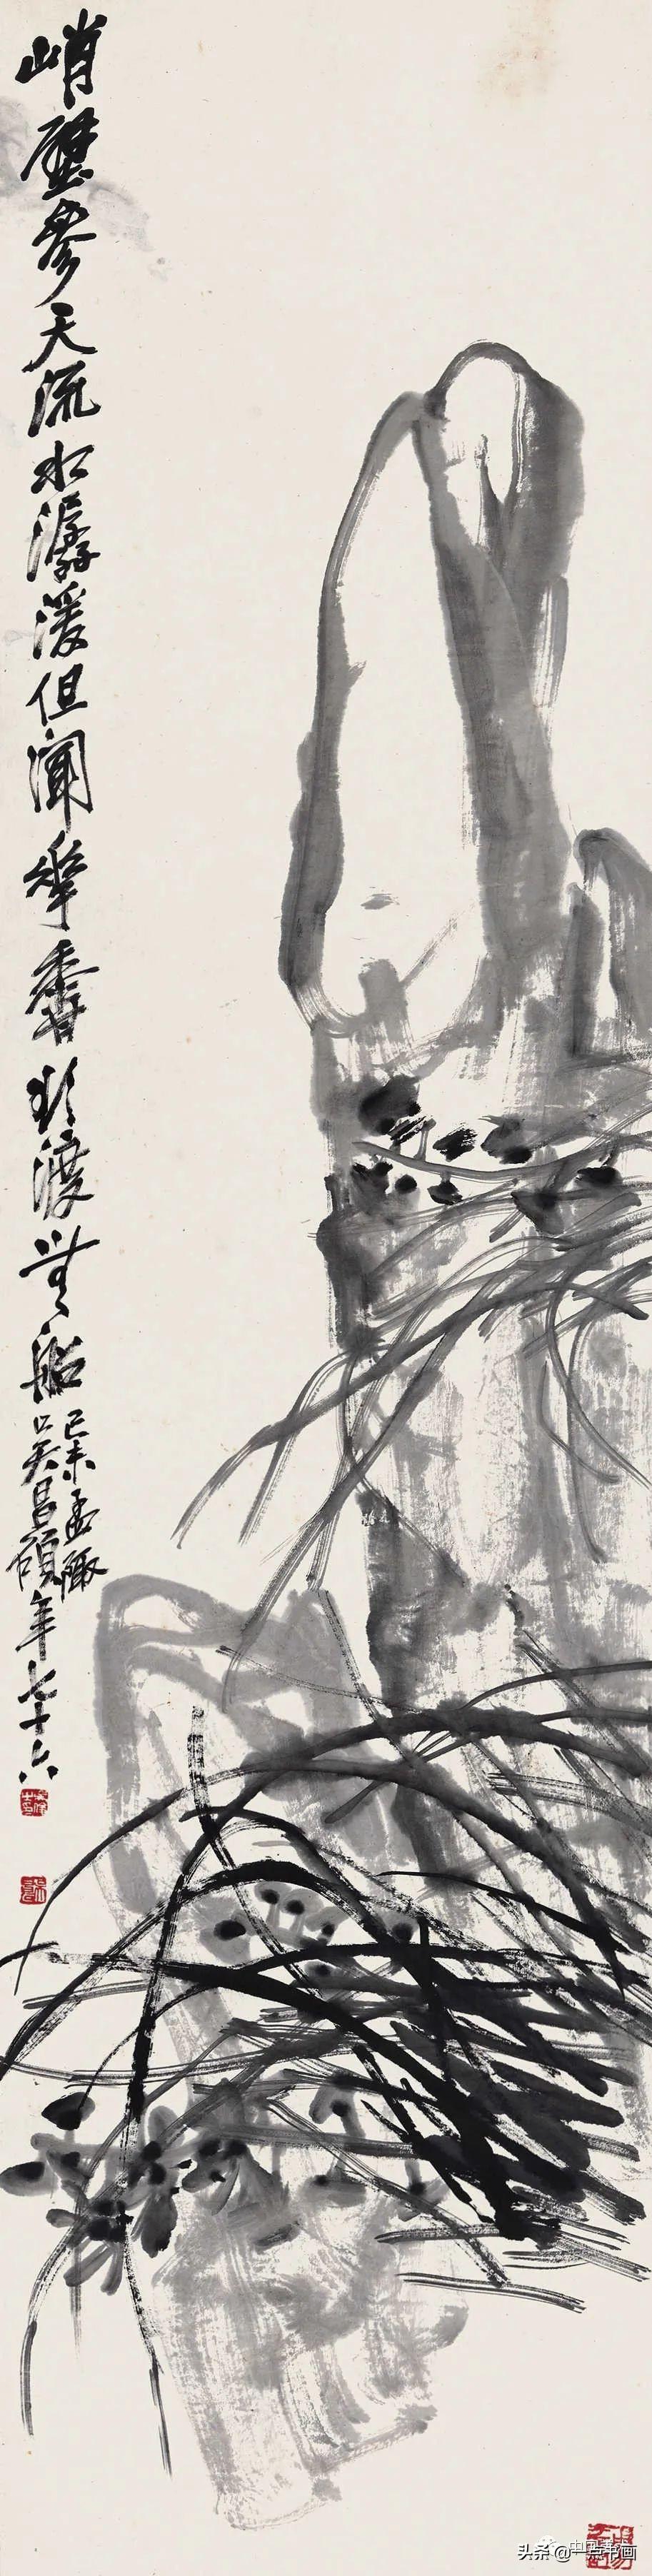 峭壁参天流水潺湲但闻华香欲渡无船
己未孟陬
吴昌硕年七十六
头条 @一点书画